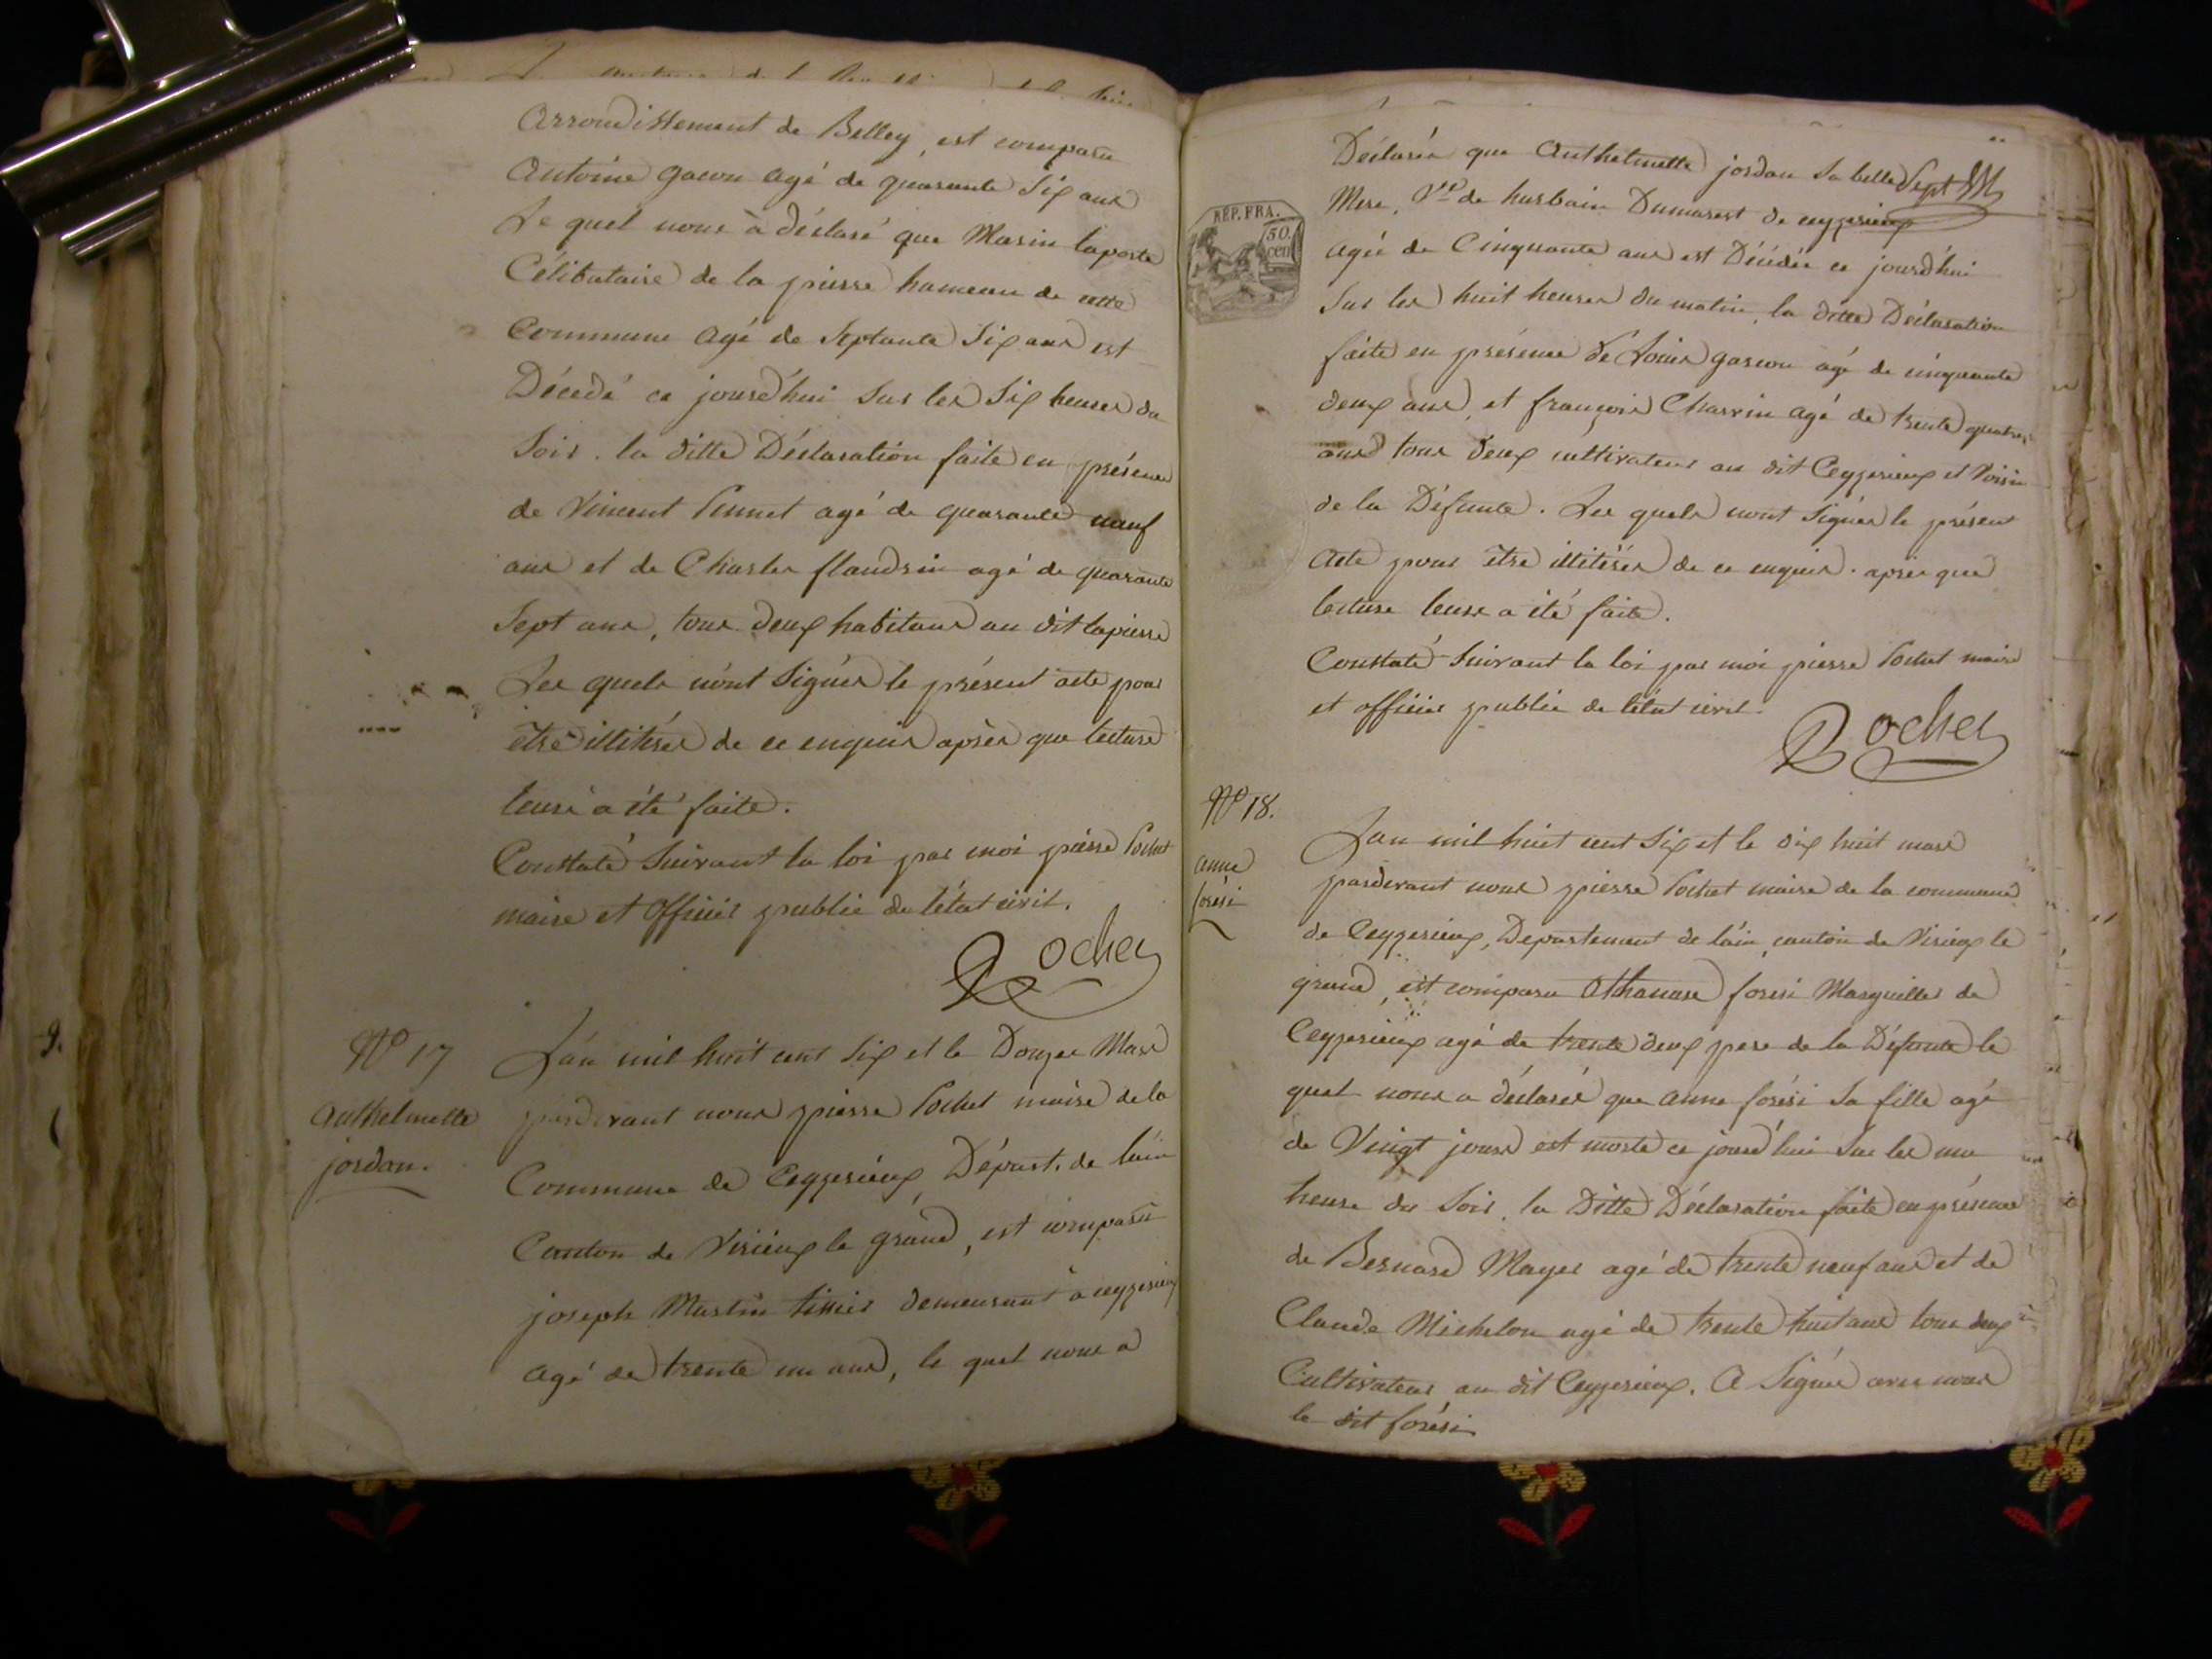 Arrondissement de Belley, est comparu
Antoine gacon agé de quarante Six ans
Le quel nous à déclaré que Marin laporte
Célibataire de la pierre hameau de cette
Commune agé de Septante Six ans est
Décédé ce jourd'hui Sur les Six heures du
Soir. la ditte Déclaration faite en présence
de Vincent agé de quarante neuf
ans et de Charles flandrin agé de quarante
Sept ans, tous deux habitans au dit lapierre
Les quels n'ont Signés le présent acte pour
être illitérés de ce enquis après que lecture
leurs a été faite.
Constaté Suivant la loi par moi pierre Pochet
maire et Officier public de l'état civil.
Pochet
N° 17
Anthelmette
jordan.
L'an mil huit cent Six et le Douze Mars
pardevant nous pierre Pochet maire de la
Commune de Ceyzerieux, Départ. de l'ain
Canton de Virieux le grand, est comparu
joseph Martin tissier demeurant à ceyzerieux
agé de trente un ans, le quel nous a
Déclarés que Anthelmette jordan Sa belle
Sept
Mere, Vve de hurbain Dumarest de ceyzerieux
REP. FRA.
50. cen
agée de Cinquante ans est Décédée ce jourd'hui
Sur les huit heures du matin, la ditte Déclaration
faite en présence de Louis gascon agé de cinquante
deux ans, et françois Charvin agé de trente quatre
ans tous deux cultivateurs au dit Ceyzerieux et Voisin
de la Défunte. Les quels n'ont Signés le présent
Acte pour être illitérés de ce enquis. après que
lecture leurs a été faite.
Constaté Suivant la loi par moi pierre Pochet maire
et officier public de l'état civil.
Pochet
N° 18.
anne
forési
L'an mil huit cent Six et le dix huit mars
pardevant nous pierre Pochet maire de la commune
de Ceyzerieux, Departement de l'ain, canton de Virieux le
grand, est comparu Athanase forési Marguiller de
Ceyzerieux agé de trente deux pere de la Défunte le
quel nous a déclarés que anne forési Sa fille agé
de Vingt jours est morte ce jourd'hui Sur les une
heure du Soir, la Ditte Déclaration faite en présence
de Bernard Mayer agé de trente neuf ans et de
Claude Michelon agé de trente huit ans tous deux
Cultivateurs au dit Ceyzerieux. A Signés avec nous
le dit forési